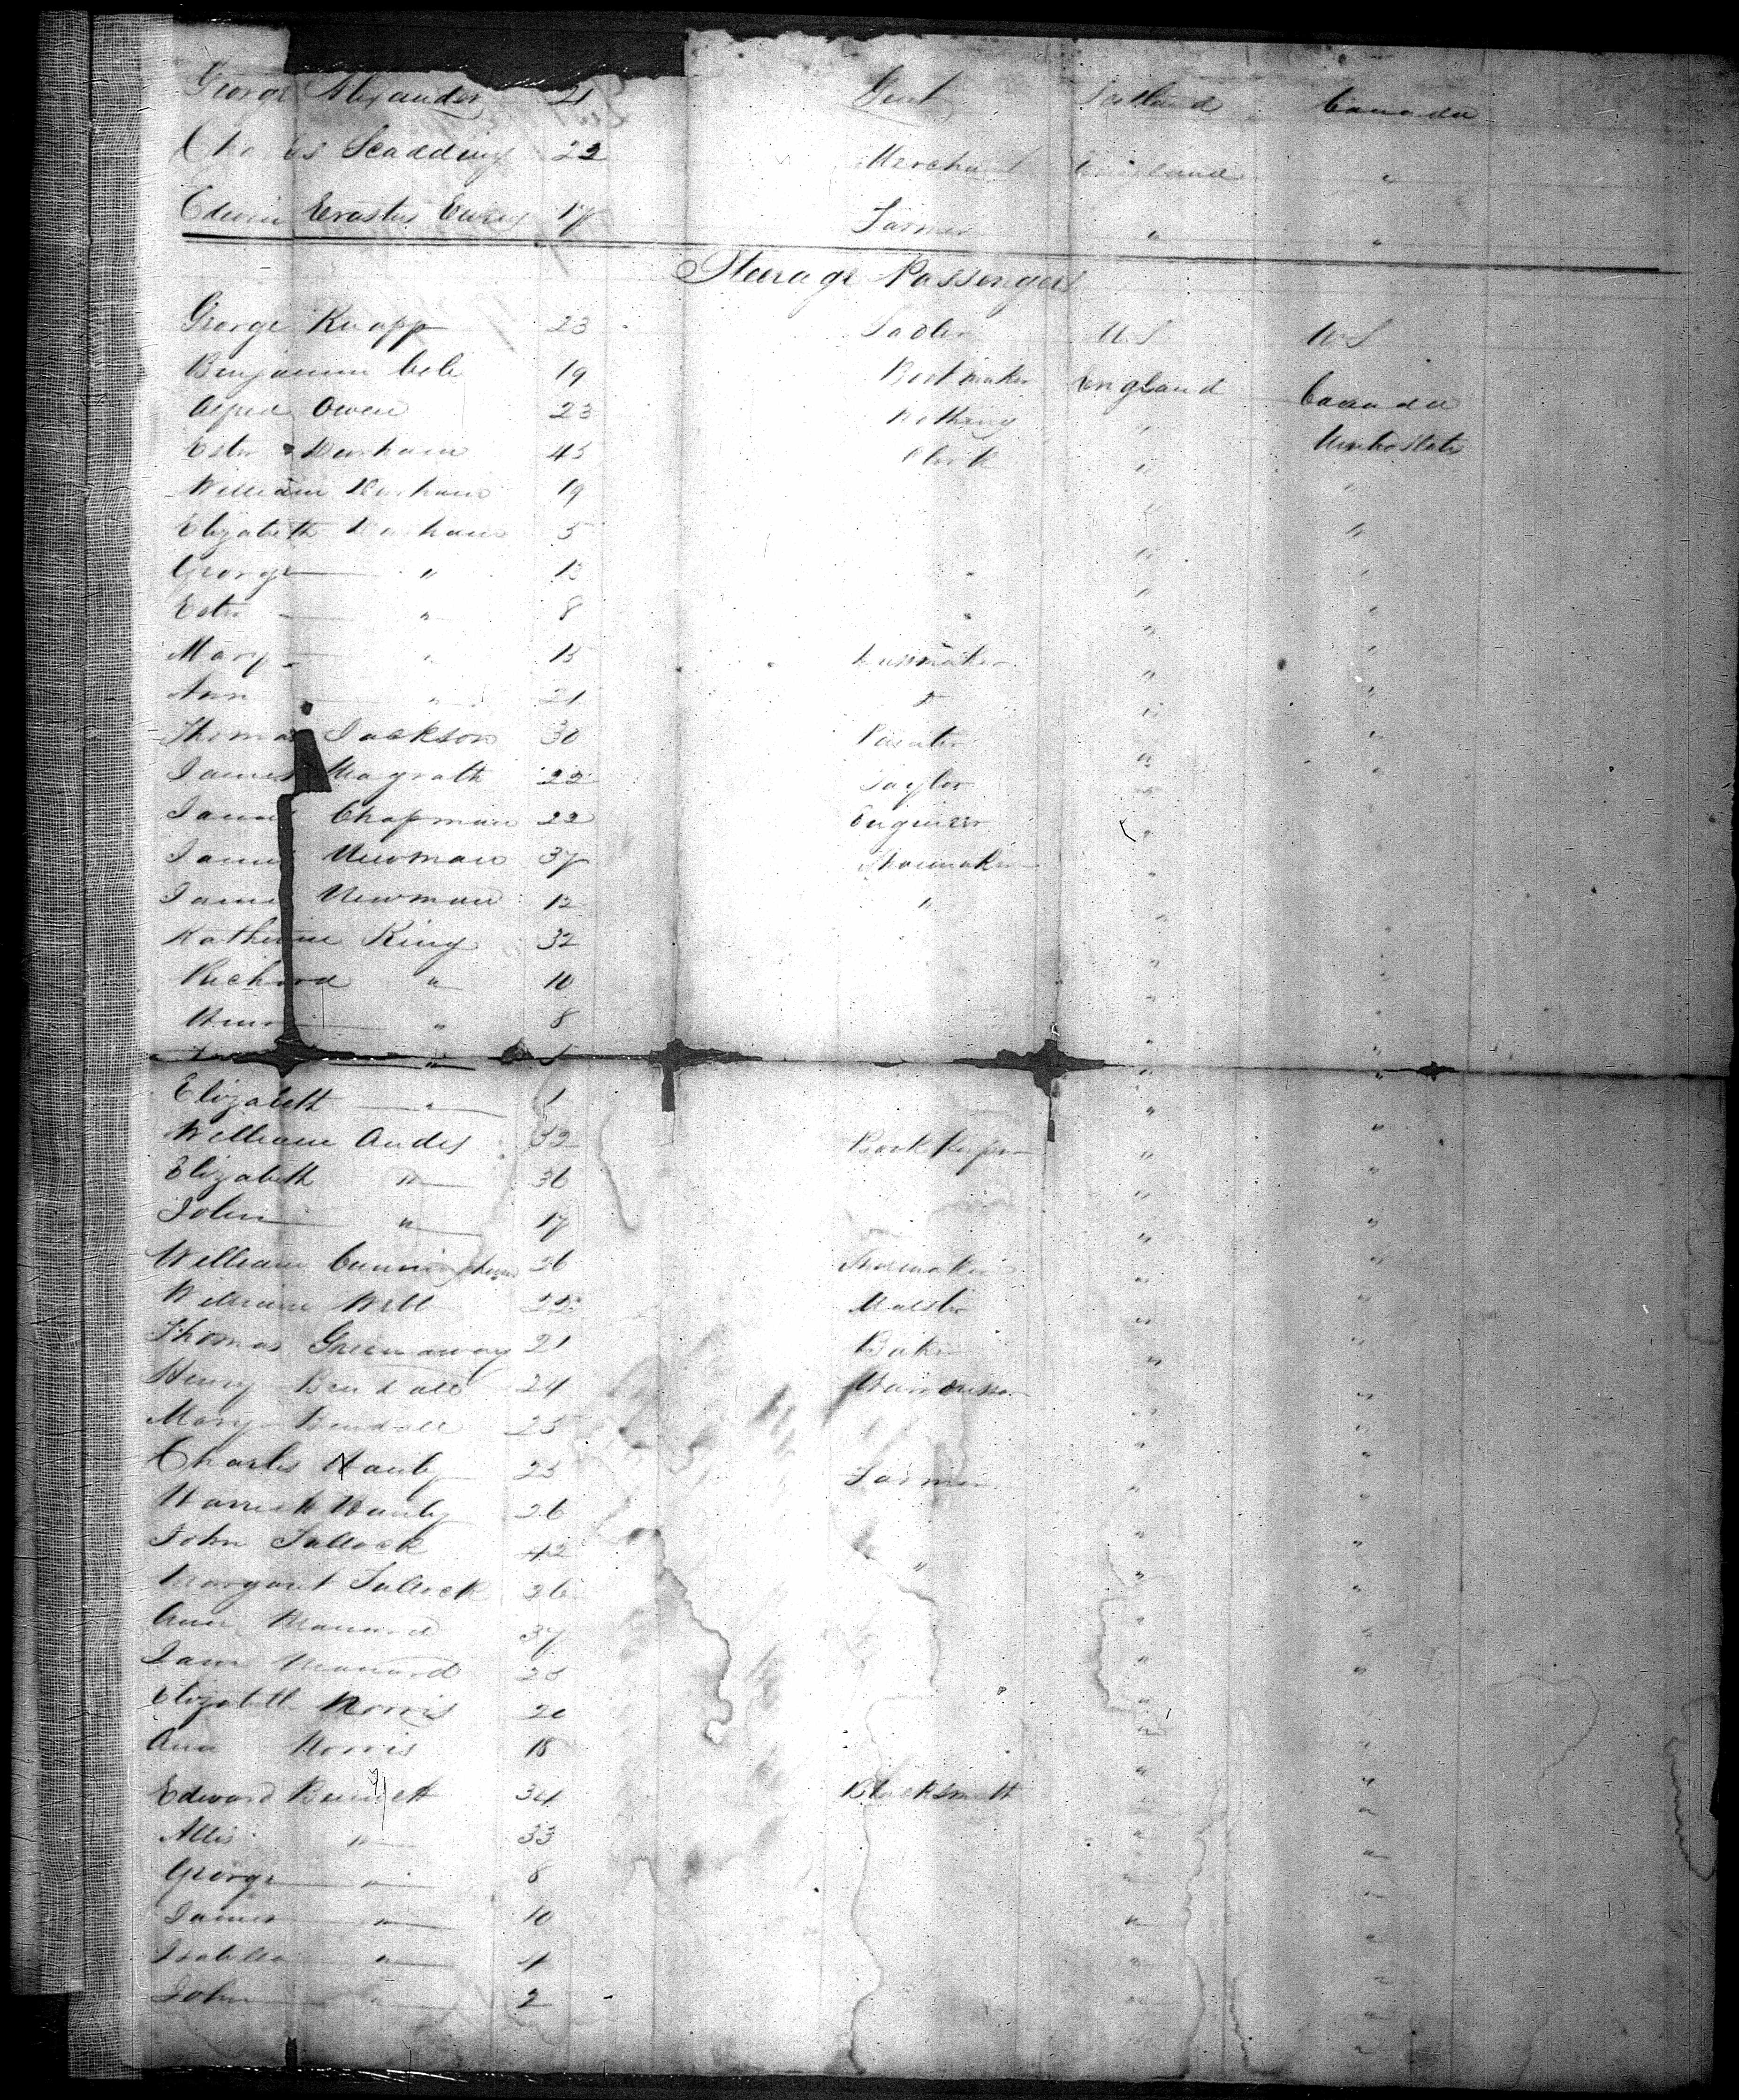 George Alexander 21 Gent Scotland Canada
Charles Scadding 22 Merchant England "
Edwin Erastus 17 Farmer " "
Stearage Passengers
George Knapp 23 Sadler U.S U S
Benjamin 19 Bootmaker England Canada
Alfred Owen 23 Nothing "
Ester Durham 45 "
William Durham 19 " "
Elizabeth Durham 5 " "
George " 13 " "
Ester " 8 " "
Mary " 15 " "
Ann " 21 " "
Thomas Jackson 30 Painter " "
James Magrath 22 Taylor " "
James Chapman 22 Engineer "
James Newman 37 Shoemaker "
James Newman 12 " "
Katherine King 32 " "
Richard " 10 " "
" 8 " "
" " "
Elizabeth " 1 " "
William Andes 32 Book Keeper " "
Elizabeth " 36 " "
John " 17 " "
William Cunningham 26 Shoemaker " "
William Will 22 " "
Thomas Greenaway 21 Baker " "
Henry Bendall 24 " "
Mary Bendall 25 " "
Charles Hanby 25 Farmer " "
Harriett Hanby 26 " "
John Sallock 42 " " "
Margaret Sallock 26 " "
Ann 37 " "
Jane 25 " "
Elizabeth Norris 20 " "
Ann Norris 18 " "
Edward 34 Blacksmith " "
" 33 " "
George " 8 " "
James " 10 " "
Isabella " 4 " "
John " 2 " "